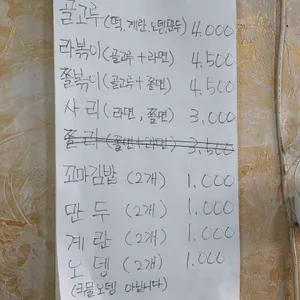 골고루 (떡, 계란, 오뎅, 만두) 4,000
라볶이 (골고루 + 라면) 4,500
쫄볶이 (골고루 + 쫄면) 4,500
사리 (라면, 쫄면) 3,000
쫄라 (쫄면 + 라면) 3,500
꼬마김밥 (2개) 1,000
만두 (2개) 1,000
계란 (2개) 1,000
오뎅 (2개) 1,000
(국물오뎅 아닙니다)